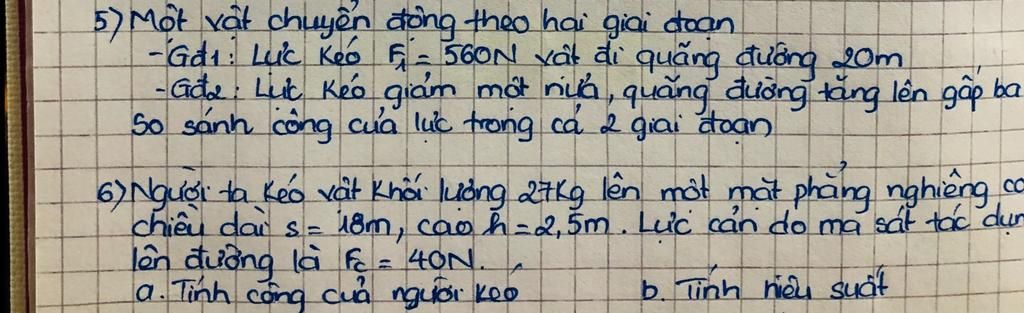 5) Một vật chuyển động theo hai giai đoạn
- Gđ1: Lực kéo F₁ = 560N vật đi quãng đường 20m
- Gđ2: Lực kéo giảm một nửa, quãng đường tăng lên gấp ba
So sánh công của lực trong cả 2 giai đoạn
6) Người ta kéo vật khối lượng 27kg lên một mặt phẳng nghiêng có
chiều dài s = 18m, cao h = 2,5m. Lực cản do ma sát tác dụn
lên đường là Fc = 40N.
a. Tính công của người kéo b. Tính hiệu suất